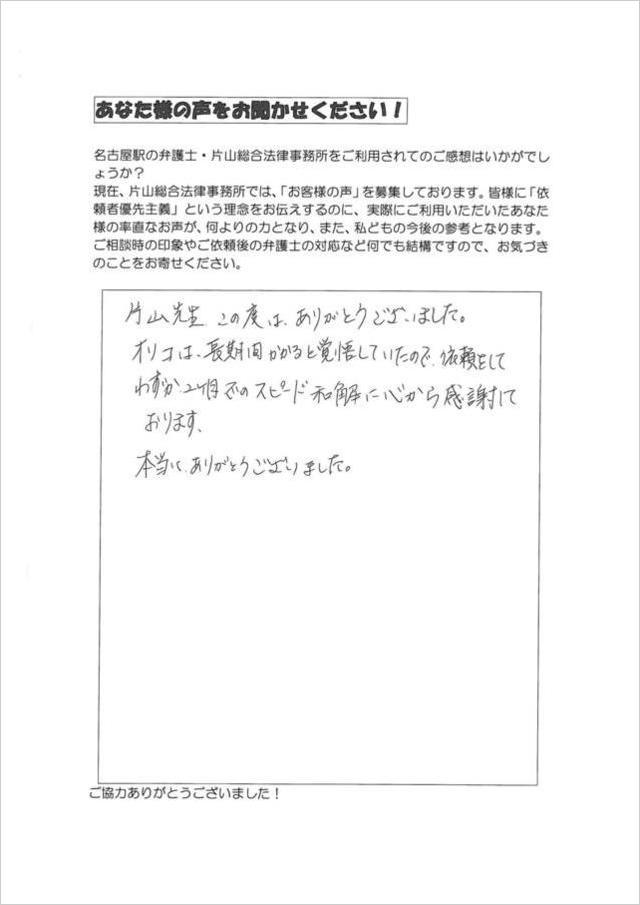 あなた様の声をお聞かせください！
名古屋駅の弁護士・片山総合法律事務所をご利用されてのご感想はいかがでし
ょうか？
現在、片山総合法律事務所では、「お客様の声」を募集しております。皆様に「依
頼者優先主義」という理念をお伝えするのに、実際にご利用いただいたあなた
様の率直なお声が、何よりの力となり、また、私どもの今後の参考となります。
ご相談時の印象やご依頼後の弁護士の対応など何でも結構ですので、お気づき
のことをお寄せください。
片山先生 この度は、ありがとうございました。
オリコは、長期間かかると覚悟していたので、依頼をして
わずか2ヶ月でのスピード和解に心から感謝して
おります、
本当に、ありがとうございました。
ご協力ありがとうございました！